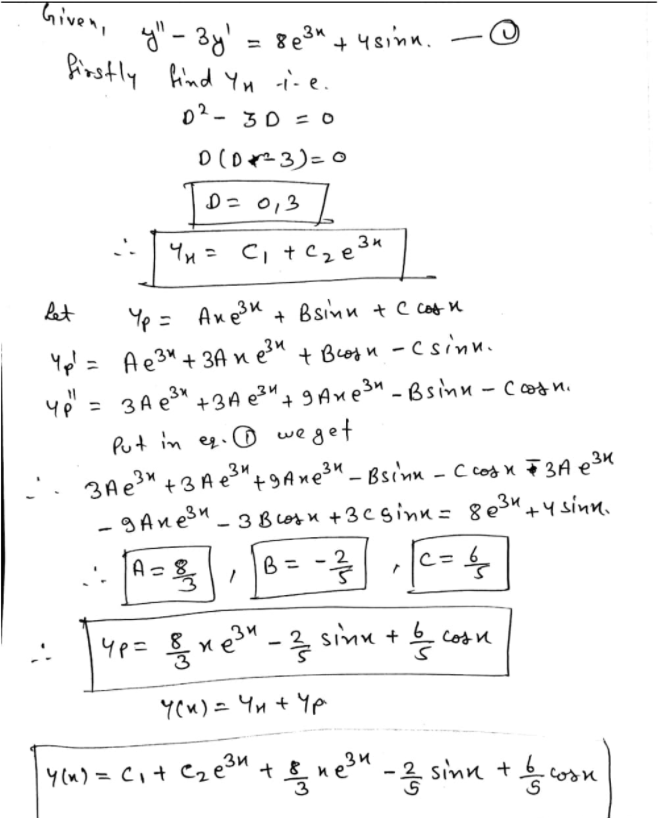 Given, y'' - 3y' = 8e^{3x} + 4sinx. — ①
firstly find y_H i.e.
D² - 3D = 0
D(D-3) = 0
D = 0,3
∴ y_H = C₁ + C₂e^{3x}
Let y_p = Axe^{3x} + Bsinx + C cosx
y_p' = Ae^{3x} + 3Axe^{3x} + Bcosx - Csinx.
y_p'' = 3Ae^{3x} + 3Ae^{3x} + 9Axe^{3x} - Bsinx - Ccosx.
Put in eq. ① we get
∴ 3Ae^{3x} + 3Ae^{3x} + 9Axe^{3x} - Bsinx - Ccosx - 3Ae^{3x}
- 9Axe^{3x} - 3Bcosx + 3Csinx = 8e^{3x} + 4sinx.
∴ A = 8/3 , B = -2/5 , C = 6/5
∴ y_p = 8/3 xe^{3x} - 2/5 sinx + 6/5 cosx
y(x) = y_H + y_p
y(x) = C₁ + C₂e^{3x} + 8/3 xe^{3x} - 2/5 sinx + 6/5 cosx